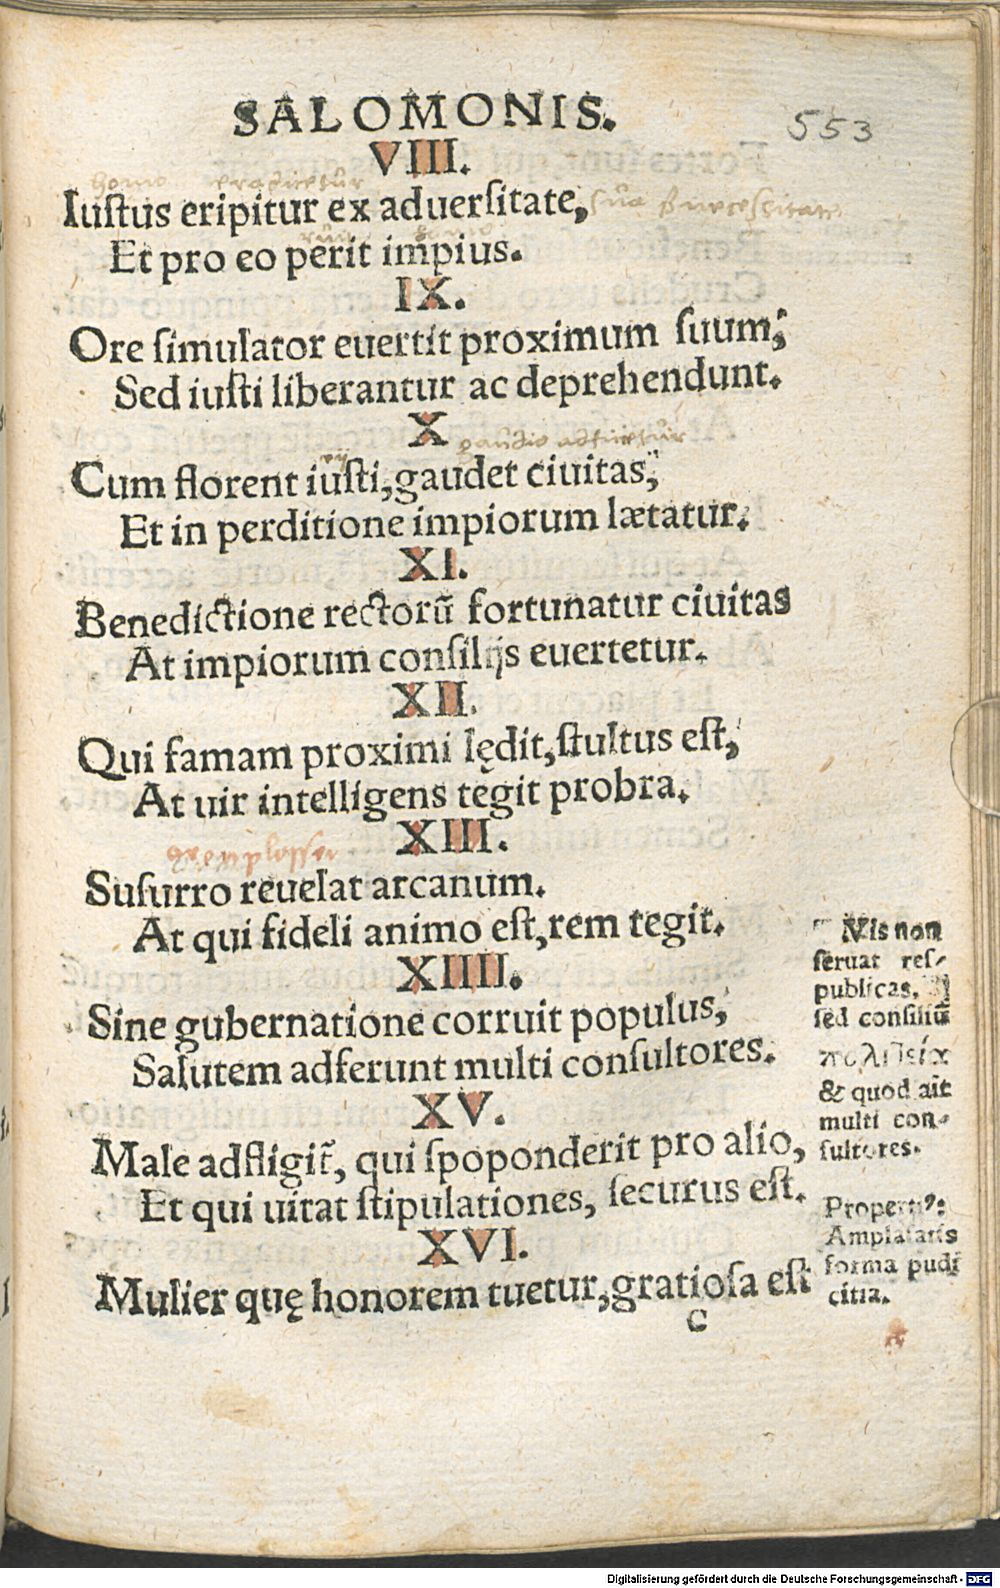 SALOMONIS.
553
VIII.
homo eradicetur
Iustus eripitur ex aduersitate,
Et pro eo perit impius.
IX.
Ore simulator euertit proximum suum,
Sed iusti liberantur ac deprehendunt.
X
gaudio adficietur
Cum florent iusti, gaudet ciuitas,
Et in perditione impiorum lætatur.
XI.
Benedictione rectorũ fortunatur ciuitas
At impiorum consilijs euertetur.
XII.
Qui famam proximi lędit, stultus est,
At uir intelligens tegit probra.
XIII.
Susurro reuelat arcanum.
At qui fideli animo est, rem tegit.
XIIII.
Sine gubernatione corruit populus,
Salutem adferunt multi consultores.
XV.
Male adfligit̃, qui spoponderit pro alio,
Et qui uitat stipulationes, securus est.
XVI.
Mulier quę honorem tuetur, gratiosa est
C
Vis non
seruat res-
publicas,
sed consiliũ
πολιτεία
& quod ait
multi con-
sultores.
Properti⁹:
Ampla satis
forma pudi
citia.
Digitalisierung gefördert durch die Deutsche Forschungsgemeinschaft - DFG